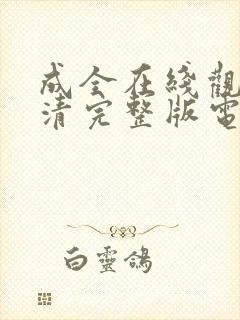 成全在綫觀
清完整版電
白靈鴿